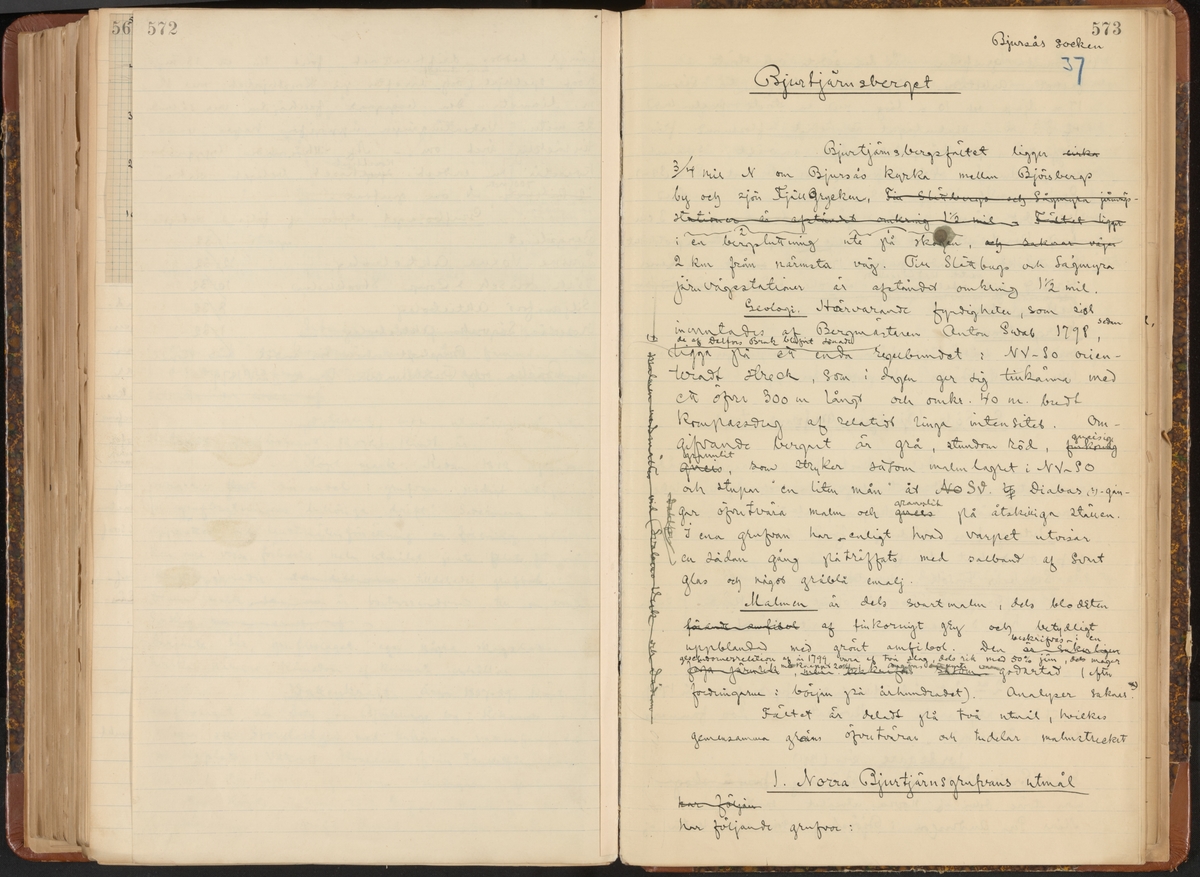 56
572
573
Bjursås socken
37
Bjurtjärnsberget
Bjurtjärnsbergsfältet ligger cirka
3/4 mil N om Bjursås kyrka mellan Björsbergs
by och sjön Fjällgrycken. Till Slättbergs och Sågmyra järnväg-
stationer är afståndet omkring 1 1/2 mil. Fältet ligger
i en bergsluttning ute på skogen, och saknar väg
2 km från närmsta väg. Till Slättbergs och Sågmyra
järnvägsstationer är afståndet omkring 1 1/2 mil.
Geologi. Härvarande fyndigheter, som
inmutades af Bergmästeren Anton Swab 1798, sedan
de af Delfors Bruk blifvit
ligga på ett enda regelbundet i NV-SO orien-
teradt streck, som i dagen ger sig tillkänna med
ett öfver 300 m långt och omkr. 40 m. bredt
kompassdrag af relatift ringa intensitet. Om-
gifvande bergart är grå, stundom röd, gneisig
granulit
gneis, som stryker såsom malmlagret i NV-SO
och stupar "en liten mån" åt NO SV. Diabas gån-
gar öfvertvära malm och granulit gneis på åtskilliga ställen.
I ena grufvan har enligt hvad varpet utvisar
en sådan gång påträffats med salband af svart
glas och något gråblå emalj.
Malmen är dels svartmalm, dels blodsten
förande amfibol af finkornigt och betydligt
uppblandad med grönt amfibol. Den beskrifves i en
relation af år 1799 vara af två slag, dels rik med 50% järn, dels mager
godartad (efter
fordringarne i början på århundradet). Analyser saknas.
Fältet är deladt på två utmål, hvilkes
gemensamma gräns öfvertvärar och tudelar malmstrecket
1. Norra Bjurtjärnsgrufvans utmål
har följan
har följande grufvor: